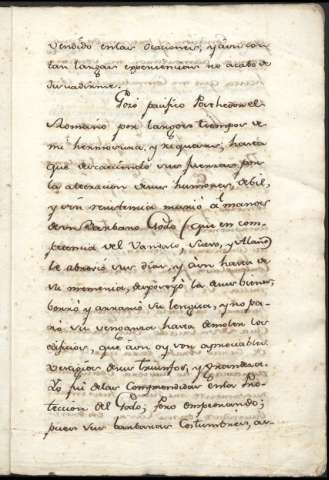 vendido en las ocaciones, y aun con
tan largas experiencias no acabo de
persuadirme.
Gozó pacifico Posehedor el
Romano por largos tiempos de
mi hermosura, y riquezas; hasta
que decaciendo sus fuerzas por
la alteracion de sus humores, debil,
y sin resistencia murió à manos
de un Barbaro Godo (que en com
petencia del Vandalo, Suevo, y Alano
le abrevió sus dias, y aun hasta de
su memoria, despojo la de sus bienes,
borró y arruinó su lengua, y no pa
ró su venganza hasta demoler los
edificios, que aun oy son apreciables
vestigios de sus triunfos, y grandeza.
Yo fui de las Comprendidas en la Pro
teccion del Godo; pero empeorando;
pues sus barbaras costumbres, as